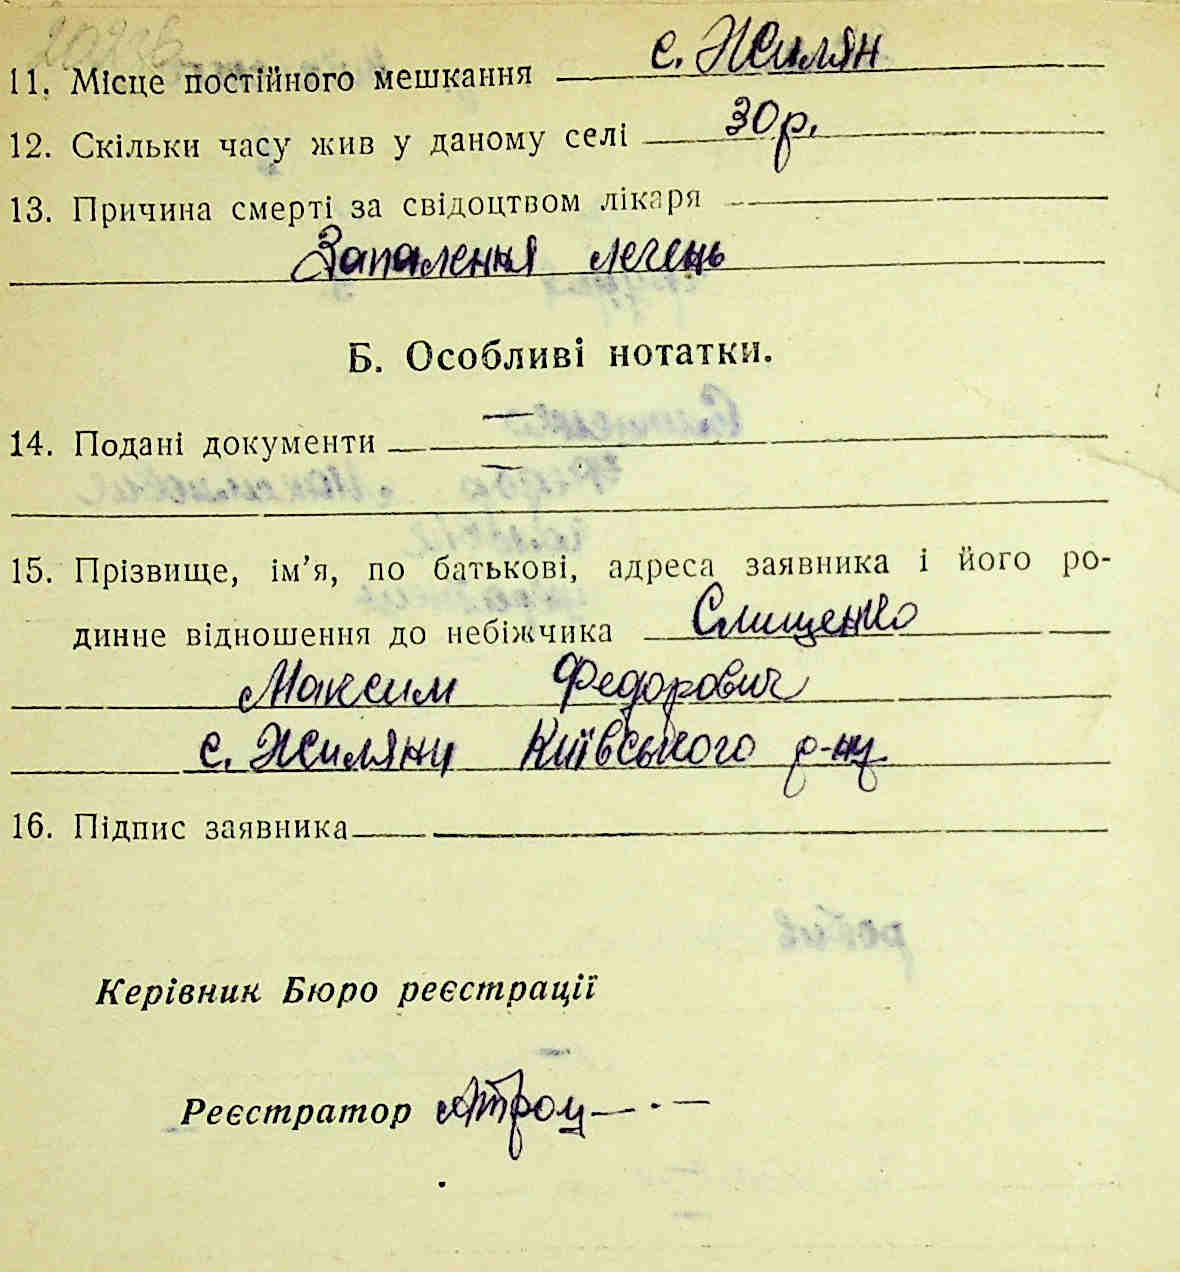 11. Місце постійного мешкання с. Жилян
12. Скільки часу жив у даному селі 30 р.
13. Причина смерті за свідоцтвом лікаря
Запалення легень
Б. Особливі нотатки.
14. Подані документи —
—
15. Прізвище, ім’я, по батькові, адреса заявника і його ро-
динне відношення до небіжчика Слищенко
Максим Федорович
с. Жиляни Київського р-ну
16. Підпис заявника
Керівник Бюро реєстрації
Реєстратор